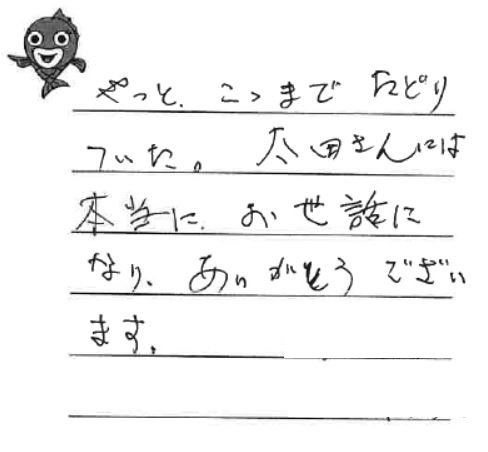 やっと、こゝまでたどり
ついた。太田さんには
本当に、お世話に
なり、ありがとうござい
ます。